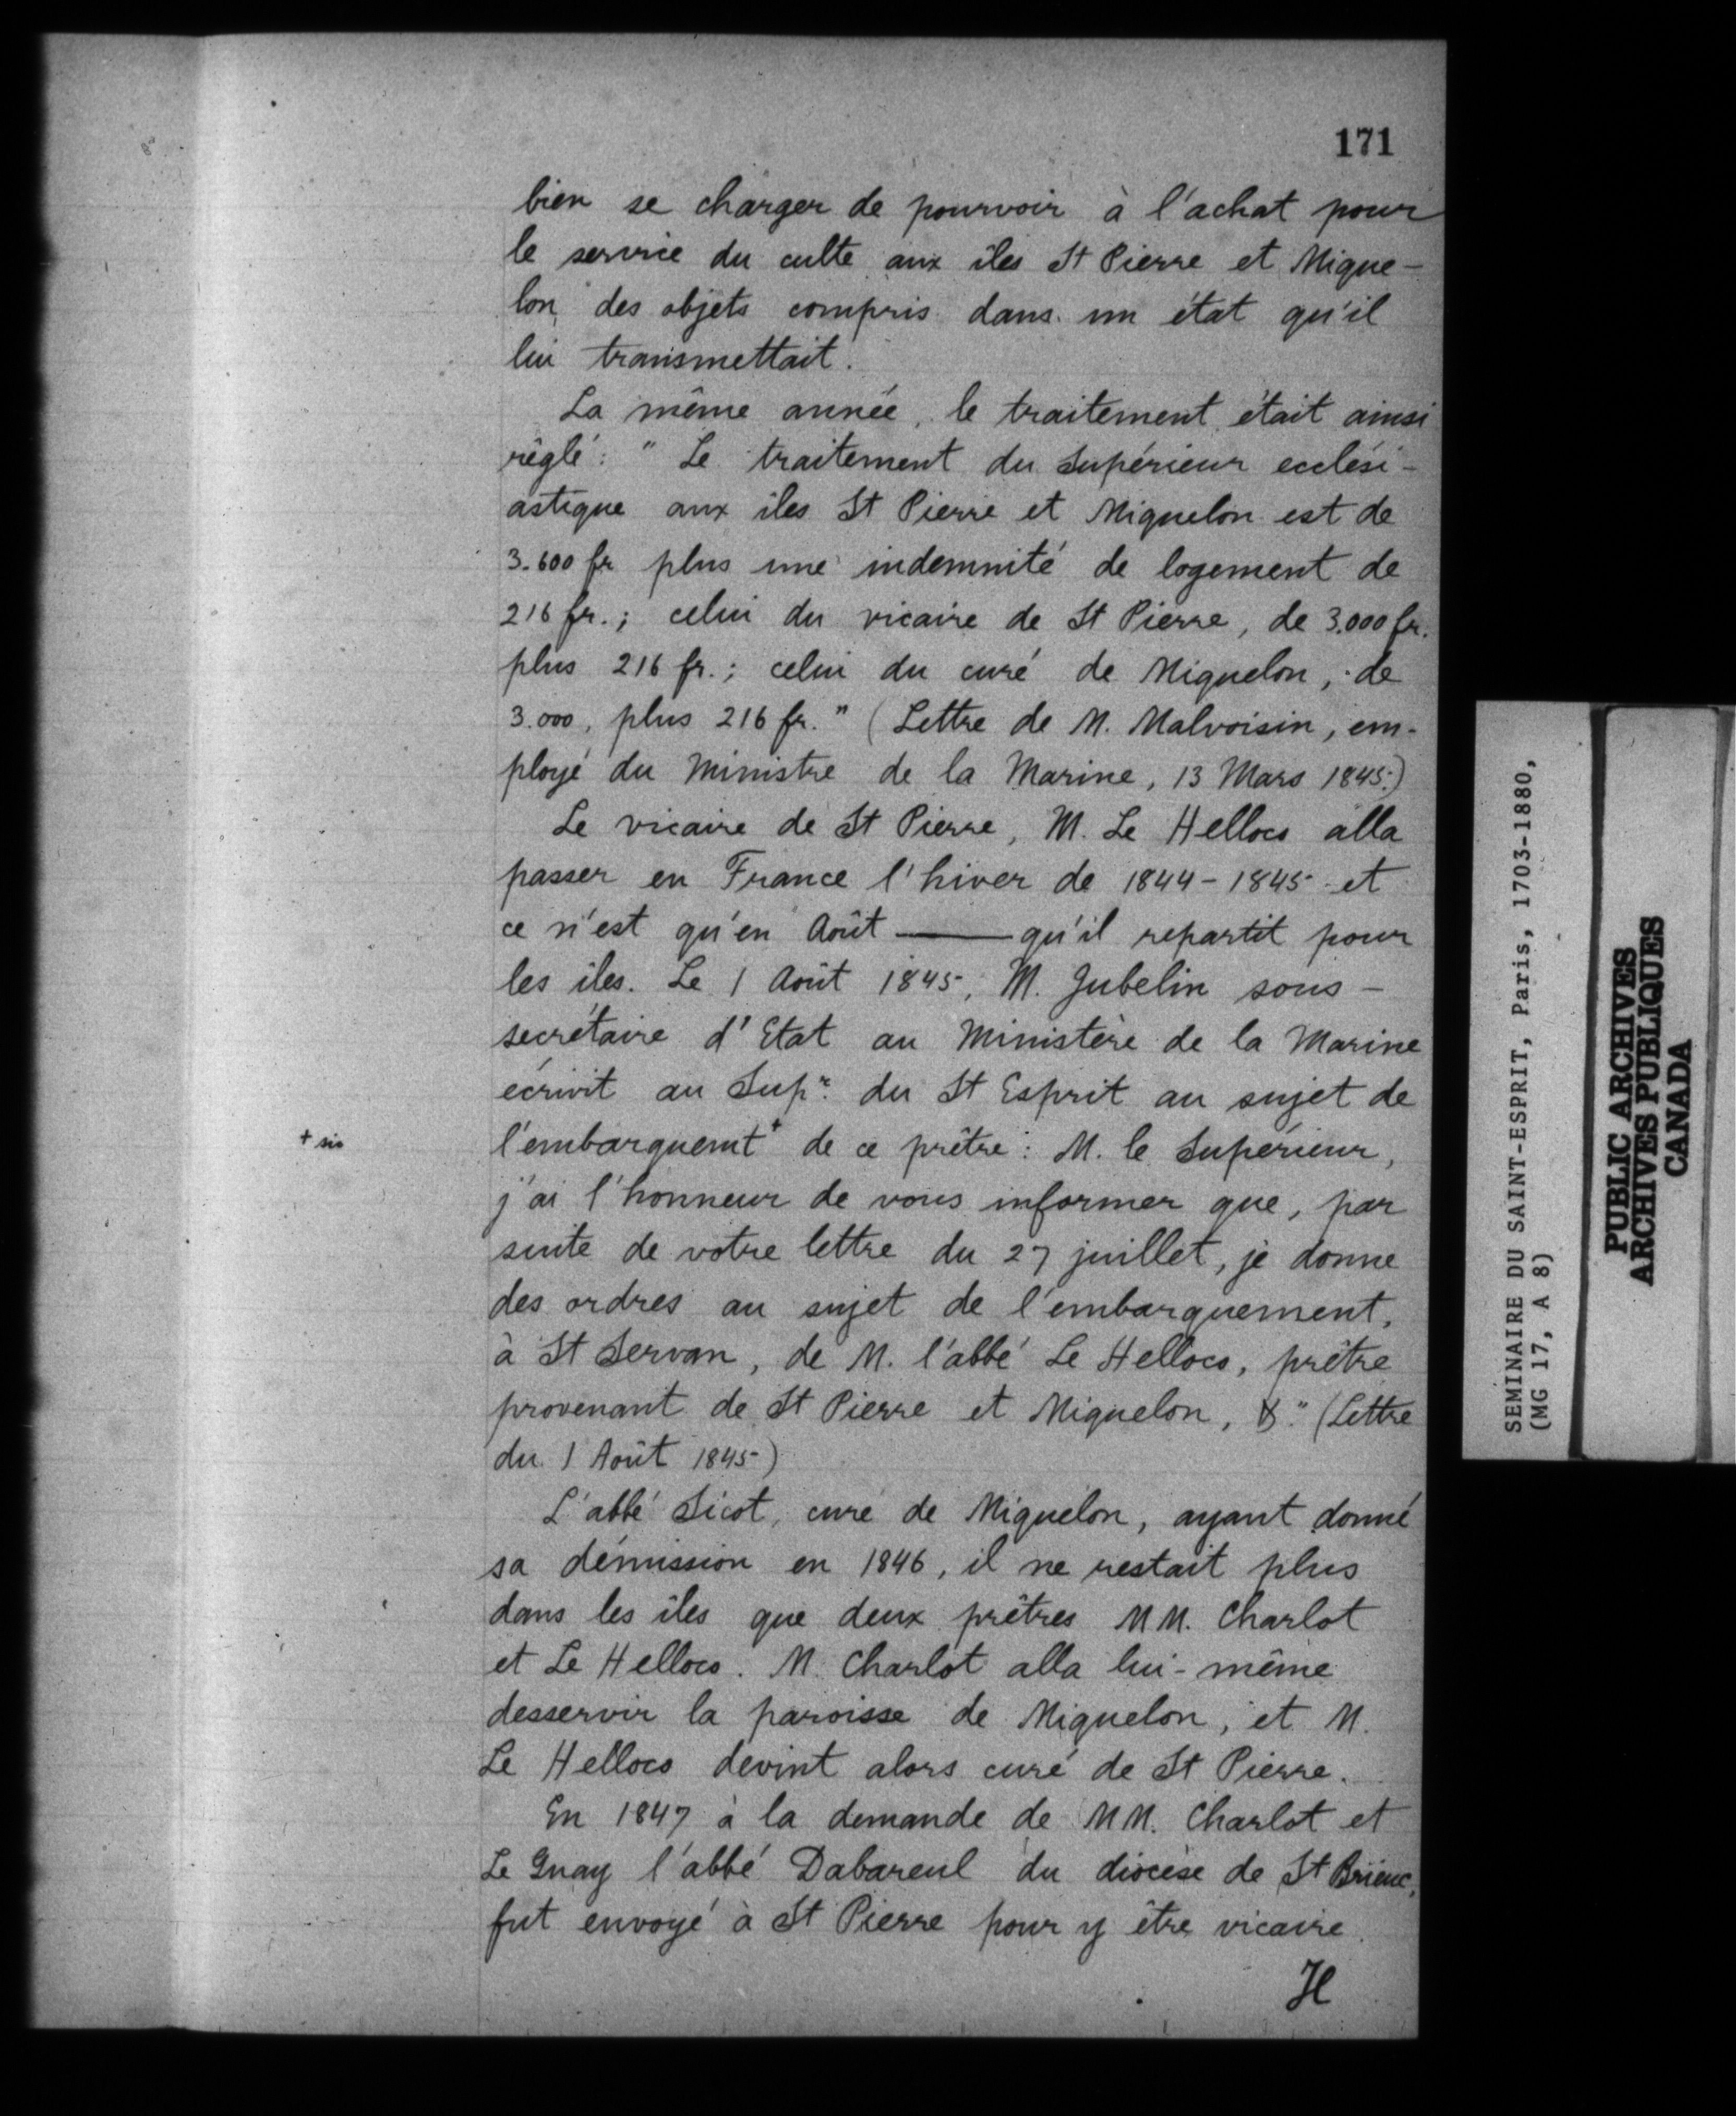 171
bien se charger de pourvoir à l'achat pour
le service du culte aux îles St Pierre et Mique-
lon, des objets compris dans un état qu'il
lui transmettait.
La même année, le traitement était ainsi
règlé : " Le traitement du Supérieur ecclési-
astique aux îles St Pierre et Miquelon est de
3.600 fr plus une indemnité de logement de
216 fr. ; celui du vicaire de St Pierre, de 3.000 fr.
plus 216 fr. ; celui du curé de Miquelon, de
3.000, plus 216 fr. " (Lettre de M. Malvoisin, em-
ployé du Ministre de la Marine, 13 Mars 1845.)
Le vicaire de St Pierre, M. Le Hellocs alla
passer en France l'hiver de 1844-1845 et
ce n'est qu'en Août ——— qu'il repartit pour
les îles. Le 1 Août 1845, M. Jubelin sous-
secrétaire d'Etat au Ministère de la Marine
écrivit au Supr. du St Esprit au sujet de
+ sic
l'embarquemt+ de ce prêtre : M. le Supérieur,
j'ai l'honneur de vous informer que, par
suite de votre lettre du 27 juillet, je donne
des ordres au sujet de l'embarquement,
à St Servan, de M. l'abbé Le Hellocs, prêtre
provenant de St Pierre et Miquelon, &." (Lettre
du 1 Août 1845)
L'abbé Sicot, curé de Miquelon, ayant donné
sa démission en 1846, il ne restait plus
dans les îles que deux prêtres MM. Charlot
et Le Hellocs. M. Charlot alla lui-même
desservir la paroisse de Miquelon, et M.
Le Hellocs devint alors curé de St Pierre.
En 1847 à la demande de MM. Charlot et
Le Guay l'abbé Dabareul du diocèse de St Brieuc,
fut envoyé à St Pierre pour y être vicaire.
H
SEMINAIRE DU SAINT-ESPRIT, Paris, 1703-1880,
(MG 17, A 8)
PUBLIC ARCHIVES
ARCHIVES PUBLIQUES
CANADA